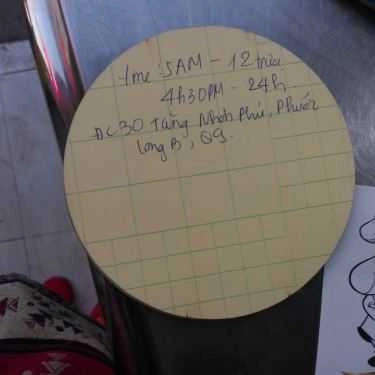 time: 5AM - 12 trưa
4h30PM - 24h
ĐC 30 Tăng Nhơn Phú, Phước
long B, Q9.